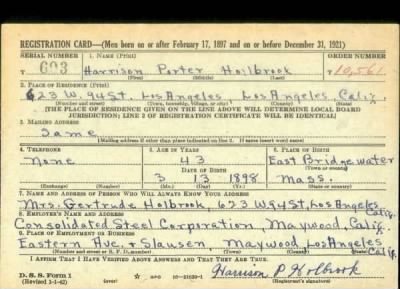 REGISTRATION CARD—(Men born on or after February 17, 1897 and on or before December 31, 1921)
SERIAL NUMBER 1. NAME (Print) ORDER NUMBER
T 603 Harrison Porter Holbrook T 10,561
(First) (Middle) (Last)
2. PLACE OF RESIDENCE (Print)
623 W. 94 St. Los Angeles Los Angeles Calif.
(Number and street) (Town, township, village, or city) (County) (State)
[THE PLACE OF RESIDENCE GIVEN ON THE LINE ABOVE WILL DETERMINE LOCAL BOARD
JURISDICTION; LINE 2 OF REGISTRATION CERTIFICATE WILL BE IDENTICAL]
3. MAILING ADDRESS
Same
[Mailing address if other than place indicated on line 2. If same insert word same]
4. TELEPHONE 5. AGE IN YEARS 6. PLACE OF BIRTH
None 43 East Bridgewater
DATE OF BIRTH (Town or county)
3 13 1898 Mass.
(Exchange) (Number) (Mo.) (Day) (Yr.) (State or country)
7. NAME AND ADDRESS OF PERSON WHO WILL ALWAYS KNOW YOUR ADDRESS
Mrs. Gertrude Holbrook, 623 W 94 St, Los Angeles Calif.
8. EMPLOYER'S NAME AND ADDRESS
Consolidated Steel Corporation, Maywood, Calif.
9. PLACE OF EMPLOYMENT OR BUSINESS
Eastern Ave. & Slausen, Maywood, Los Angeles Calif.
(Number and street or R. F. D. number) (Town) (County) (State)
I AFFIRM THAT I HAVE VERIFIED ABOVE ANSWERS AND THAT THEY ARE TRUE.
Harrison P Holbrook
D. S. S. Form 1
(Revised 4-1-42) (over) (Registrant's signature)